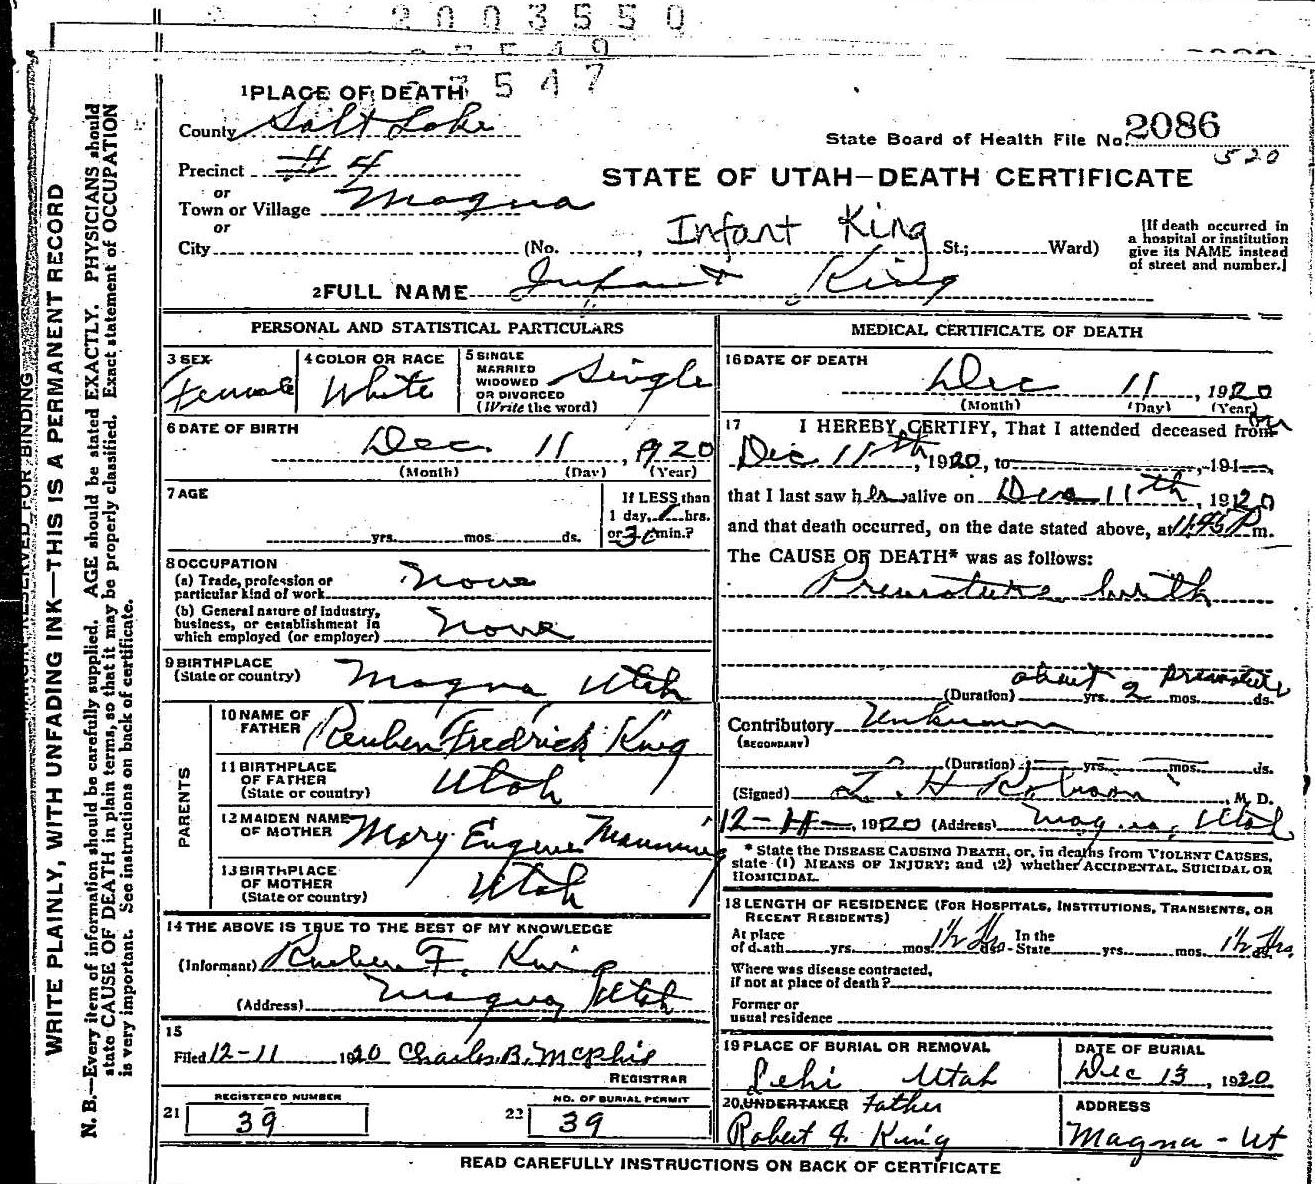 2003550
27549
27547
1 PLACE OF DEATH
County Salt Lake
State Board of Health File No. 2086
520
Precinct #4
or
STATE OF UTAH—DEATH CERTIFICATE
Town or Village Magna
or
City (No. , Infant King St.; Ward)
[If death occurred in a hospital or institution give its NAME instead of street and number.]
2 FULL NAME Infant King
PERSONAL AND STATISTICAL PARTICULARS
3 SEX
Female
4 COLOR OR RACE
White
5 SINGLE
MARRIED
WIDOWED
OR DIVORCED
(Write the word)
Single
6 DATE OF BIRTH
Dec. 11, 1920
(Month) (Day) (Year)
7 AGE
yrs. mos. ds.
If LESS than
1 day, 1 hrs.
or 30 min.?
8 OCCUPATION
(a) Trade, profession or
particular kind of work None
(b) General nature of industry,
business, or establishment in
which employed (or employer) None
9 BIRTHPLACE
(State or country) Magna Utah
PARENTS
10 NAME OF
FATHER Reuben Fredrick King
11 BIRTHPLACE
OF FATHER
(State or country) Utah
12 MAIDEN NAME
OF MOTHER Mary Eugene Manning
13 BIRTHPLACE
OF MOTHER
(State or country) Utah
14 THE ABOVE IS TRUE TO THE BEST OF MY KNOWLEDGE
(Informant) Reuben F. King
(Address) Magna, Utah
15
Filed 12-11 1920 Charles B. McPhie
REGISTRAR
REGISTERED NUMBER
21 39
NO. OF BURIAL PERMIT
22 39
MEDICAL CERTIFICATE OF DEATH
16 DATE OF DEATH
Dec 11, 1920
(Month) (Day) (Year)
17 I HEREBY CERTIFY, That I attended deceased from
on
Dec 11th, 1920, to , 191
that I last saw her alive on Dec 11th, 1920
and that death occurred, on the date stated above, at 11:45 P m.
The CAUSE OF DEATH* was as follows:
Premature birth
about premature
(Duration) yrs. 2 mos. ds.
Contributory Unknown
(SECONDARY)
(Duration) yrs. mos. ds.
(Signed) L. H. Robison, M. D.
12-11-, 1920 (Address) Magna, Utah
* State the DISEASE CAUSING DEATH, or, in deaths from VIOLENT CAUSES,
state (1) MEANS OF INJURY; and (2) whether ACCIDENTAL, SUICIDAL OR
HOMICIDAL.
18 LENGTH OF RESIDENCE (FOR HOSPITALS, INSTITUTIONS, TRANSIENTS, OR
RECENT RESIDENTS)
At place
of death yrs. mos. 1½ Hrs In the
State yrs. mos. 1½ Hrs.
Where was disease contracted,
if not at place of death?
Former or
usual residence
19 PLACE OF BURIAL OR REMOVAL
Lehi Utah
DATE OF BURIAL
Dec 13, 1920
20 UNDERTAKER Father
Robert F. King
ADDRESS
Magna - Ut
READ CAREFULLY INSTRUCTIONS ON BACK OF CERTIFICATE
MARGIN RESERVED FOR BINDING
WRITE PLAINLY, WITH UNFADING INK—THIS IS A PERMANENT RECORD
N. B.—Every item of information should be carefully supplied. AGE should be stated EXACTLY. PHYSICIANS should
state CAUSE OF DEATH in plain terms, so that it may be properly classified. Exact statement of OCCUPATION
is very important. See instructions on back of certificate.